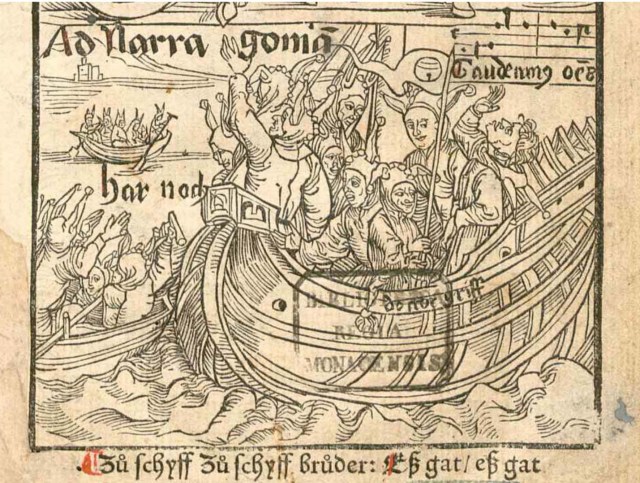 Ad Narra goniā
Gaudeamꝰ oēs
har noch
griff
REGIA
MONACENSIS
Zů schyff Zů schyff brůder: Eß gat / eß gat